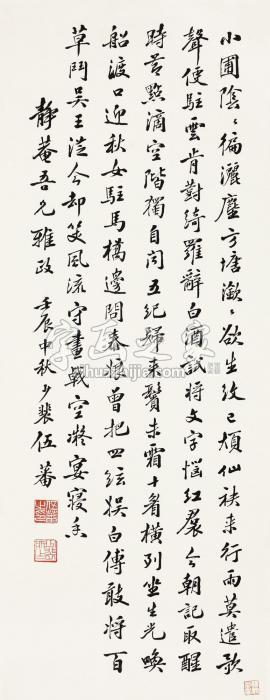 小圃陰〻徧灑塵方塘瀲〻欲生紋已煩仙袂來行雨莫遣歌
聲便駐雲肯對綺羅辭白酒試將文字惱紅裙今朝記取醒
時節點滴空階獨自聞五紀歸來鬢未霜十眉橫列坐生光喚
船渡口迎秋女駐馬橋邊問泰娘曾把四絃娛白傅敢將百
草鬥吳王從今却笑風流守畫戟空凝宴寢香
靜菴吾兄雅政 壬辰中秋少裴伍蕃